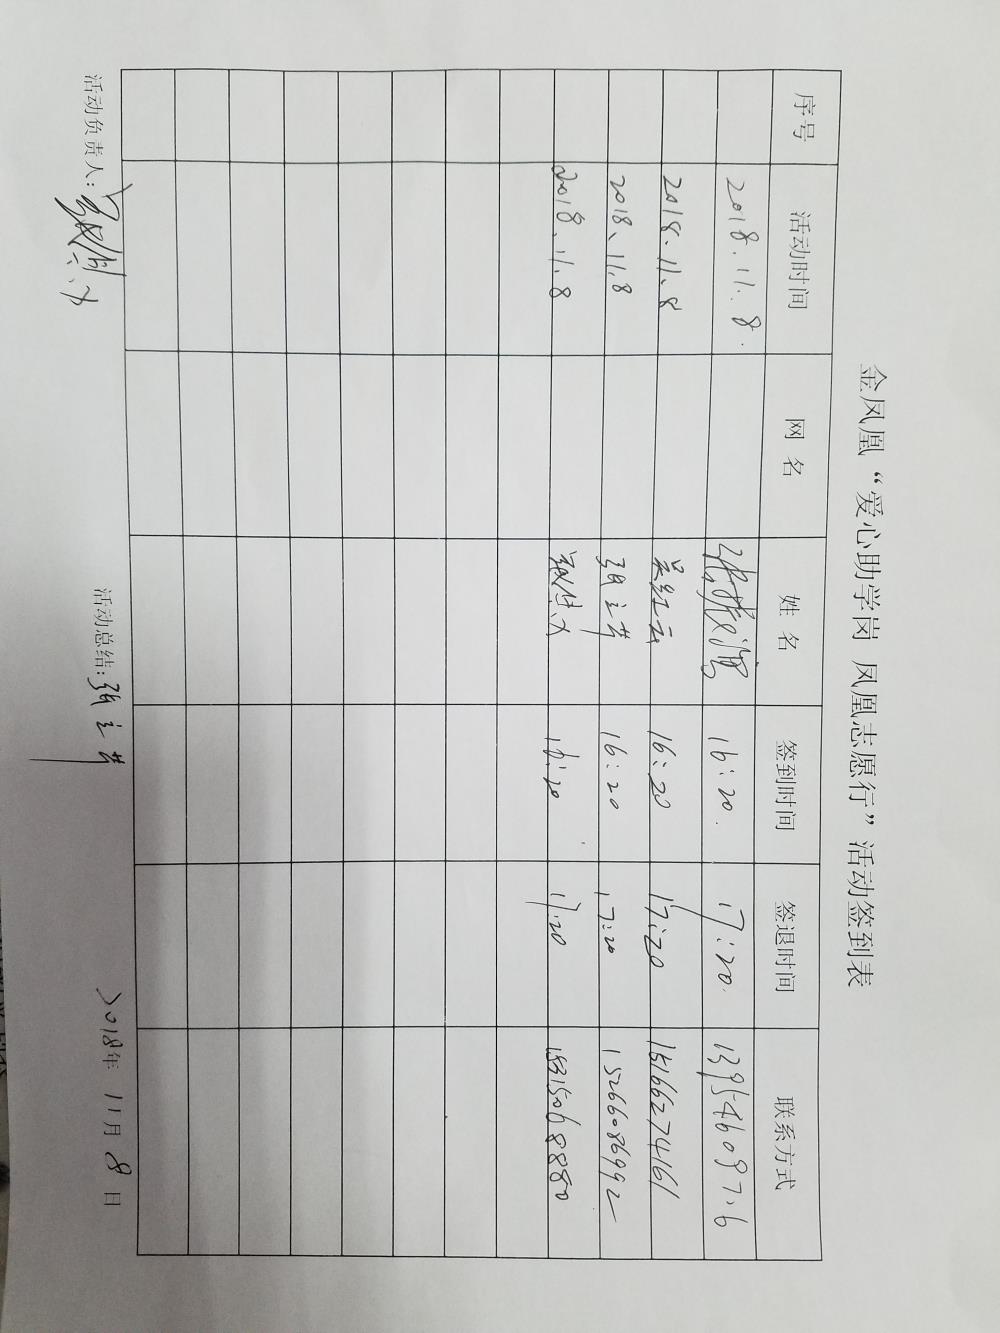 金凤凰“爱心助学岗 凤凰志愿行”活动签到表
序号 活动时间 网 名 姓 名 签到时间 签退时间 联系方式
2018.11.8. 16:20. 17:20.
2018.11.8 吴红云 16:20 17:20 15166274161
2018、11.8 张立芳 16:20 17:20 15266086992
2018、11.8 16:20 17:20 15315068880
活动负责人: 活动总结:张立芳 2018年 11月 8日